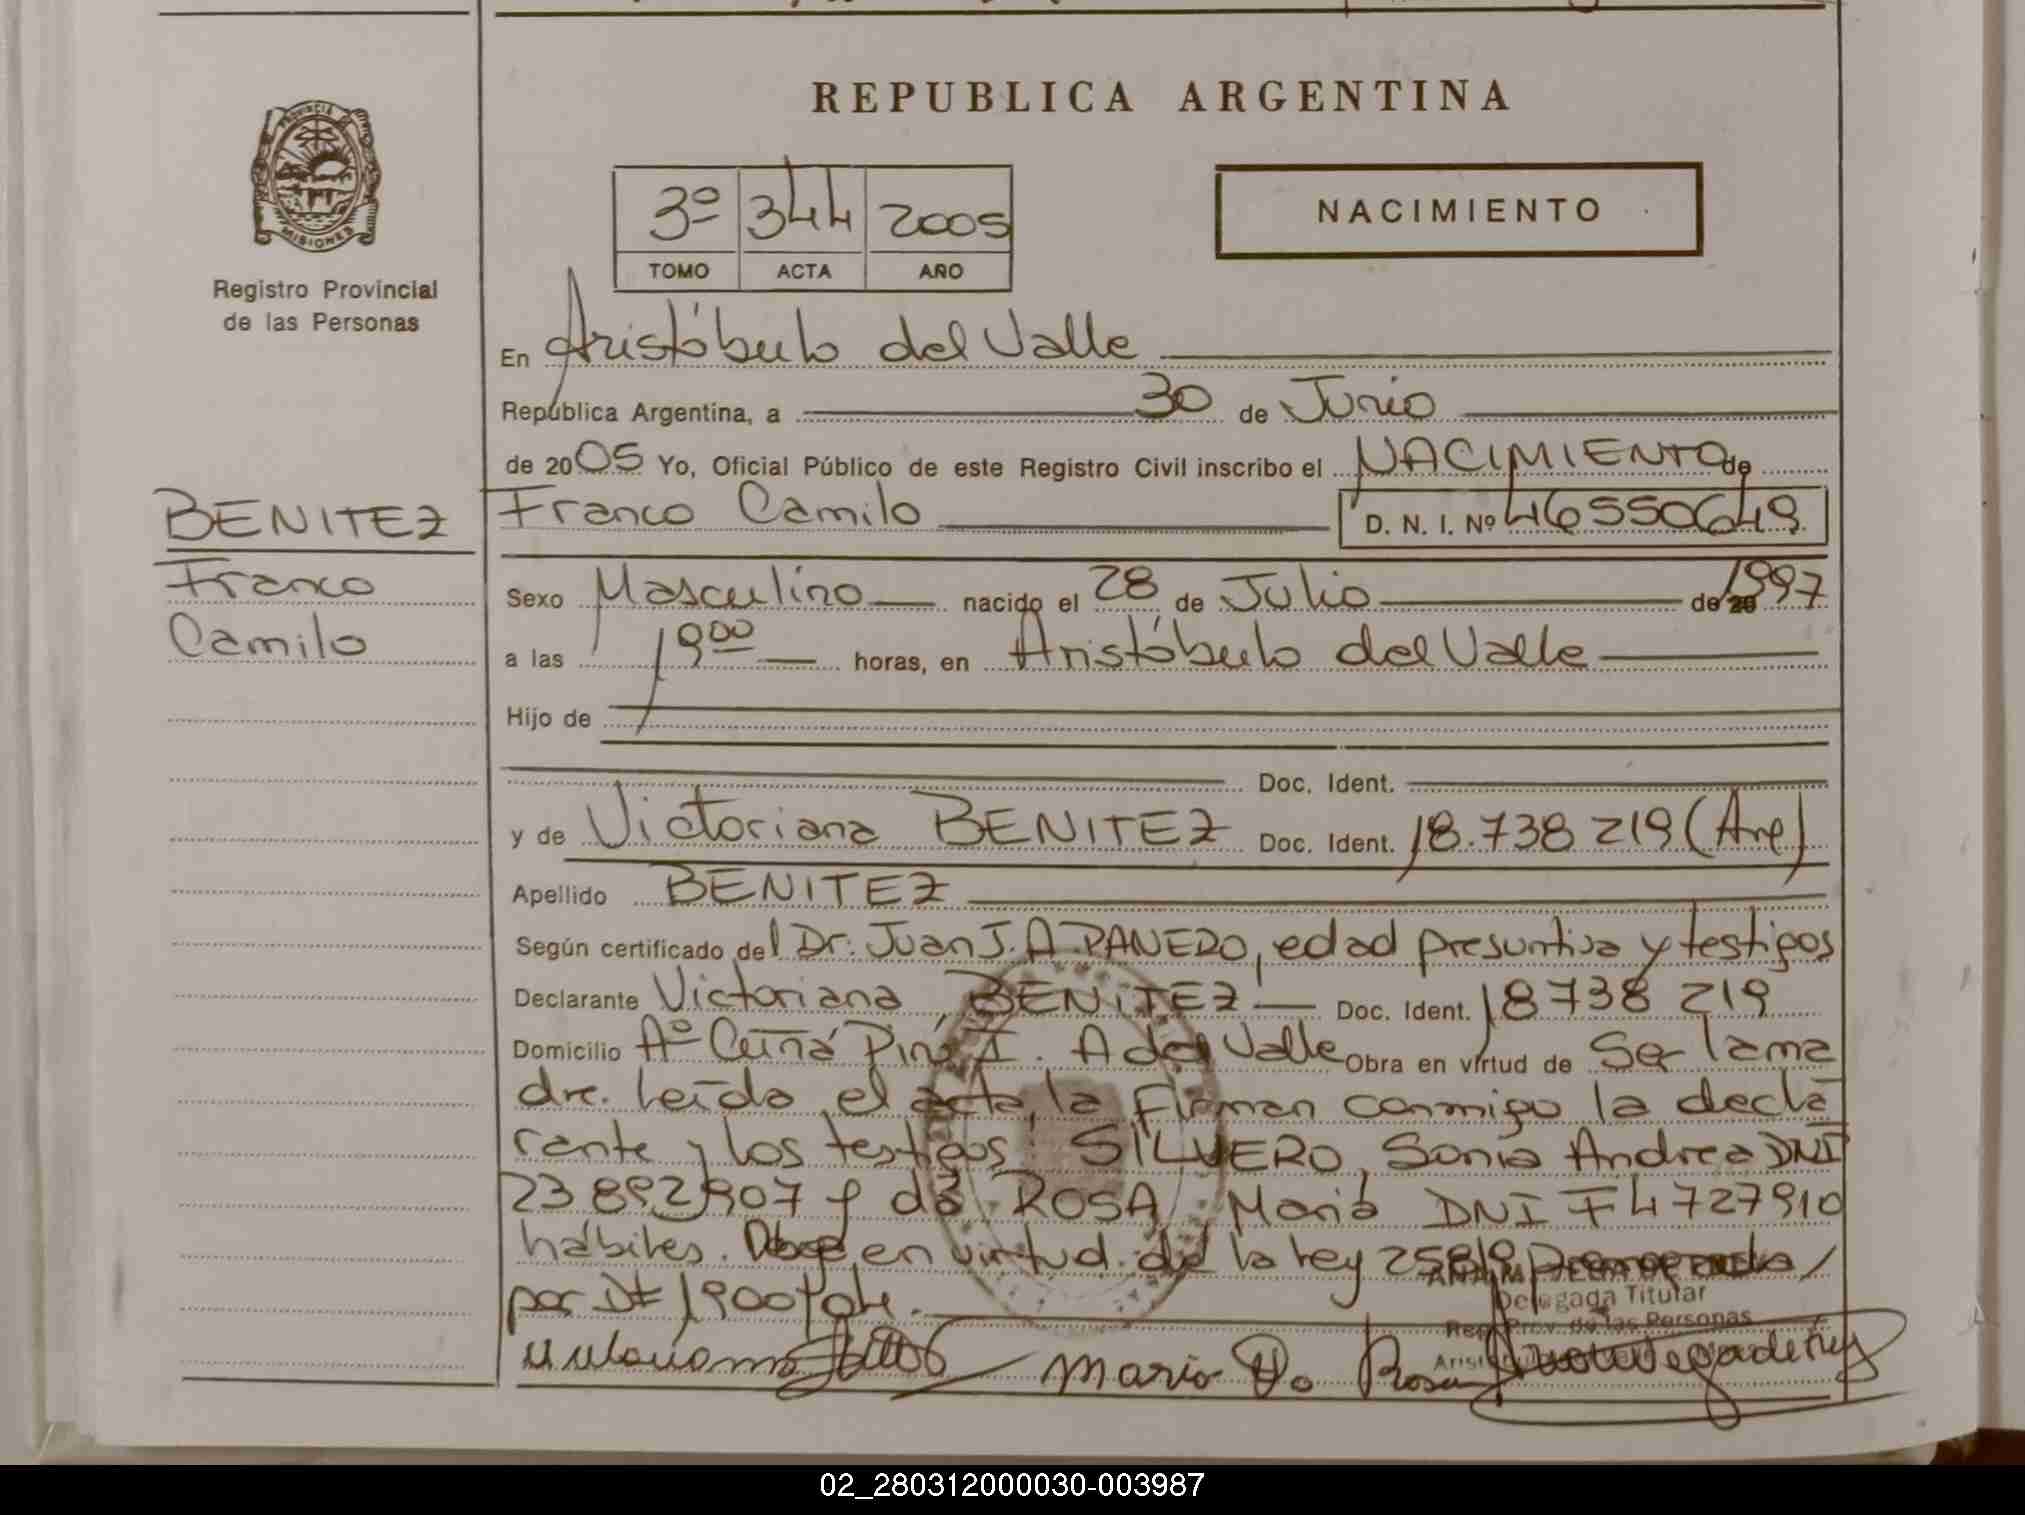 REPUBLICA ARGENTINA
PROVINCIA DE
MISIONES
Registro Provincial
de las Personas
3º 344 2005
TOMO ACTA AÑO
NACIMIENTO
En Aristóbulo del Valle
República Argentina, a 30 de Junio
de 2005 Yo, Oficial Público de este Registro Civil inscribo el NACIMIENTO de
BENITEZ
Franco
Camilo
Franco Camilo D. N. I. Nº 46550649
Sexo Masculino nacido el 28 de Julio de 20 1997
a las 19 00 horas, en Aristóbulo del Valle
Hijo de
Doc. Ident.
y de Victoriana BENITEZ Doc. Ident. 18.738 219 (Arg)
Apellido BENITEZ
Según certificado del Dr. Juan J. A. PANERO, edad presuntiva y testigos
Declarante Victoriana BENITEZ Doc. Ident. 18738 219
Domicilio Aº Cuñá Pirú I. A del Valle Obra en virtud de Ser la ma
dre. Leída el acta, la firman conmigo la decla
rante y los testigos: SILVERO, Sonia Andrea DNI
23 892907 y da ROSA, María DNI F 4727910
hábiles. en virtud de la ley
por 1900/04.
Delegada Titular
Reg. Prov. de las Personas
María D. Rosa
02_280312000030-003987